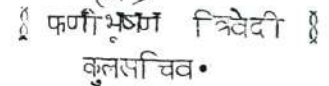 फणीभूषण त्रिवेदी
कुलसचिव•